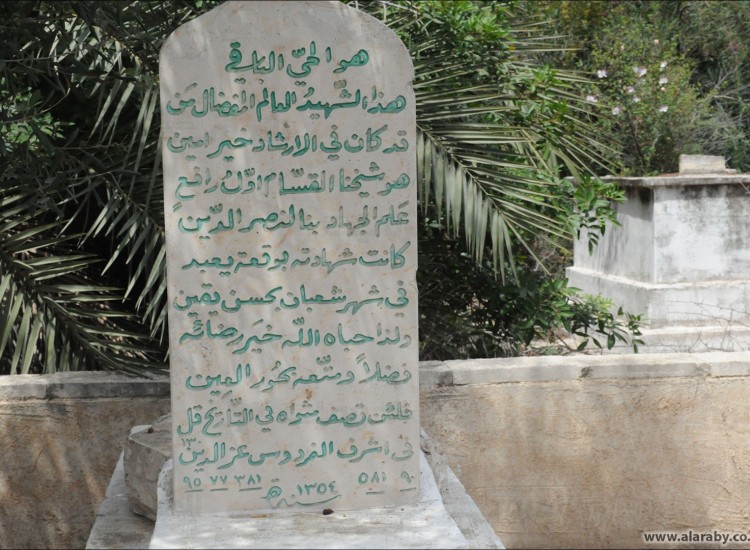 هو الحيّ الباقي
هذا الشّهيدُ العالم المفضال مَن
قد كان في الارشاد خير امين
هو شيخنا القسّام اوّلُ رافعٍ
عَلم الجهاد بنا لنصر الدّينِ
كانت شهادته بوقعة يعبد
في شهر شعبان بحسن يقين
ولذا حباه اللّه خيَر رضائه
فضلاً ومتّعه بحُور العِين
فلئن تصف مثواه في التّاريخ قل
في اشرف الفردوس عز الدين
٩٠ ٥٨١ ٣٨١ ٧٧ ٩٥ ١٣
سنة ١٣٥٤ هـ
www.alaraby.co.